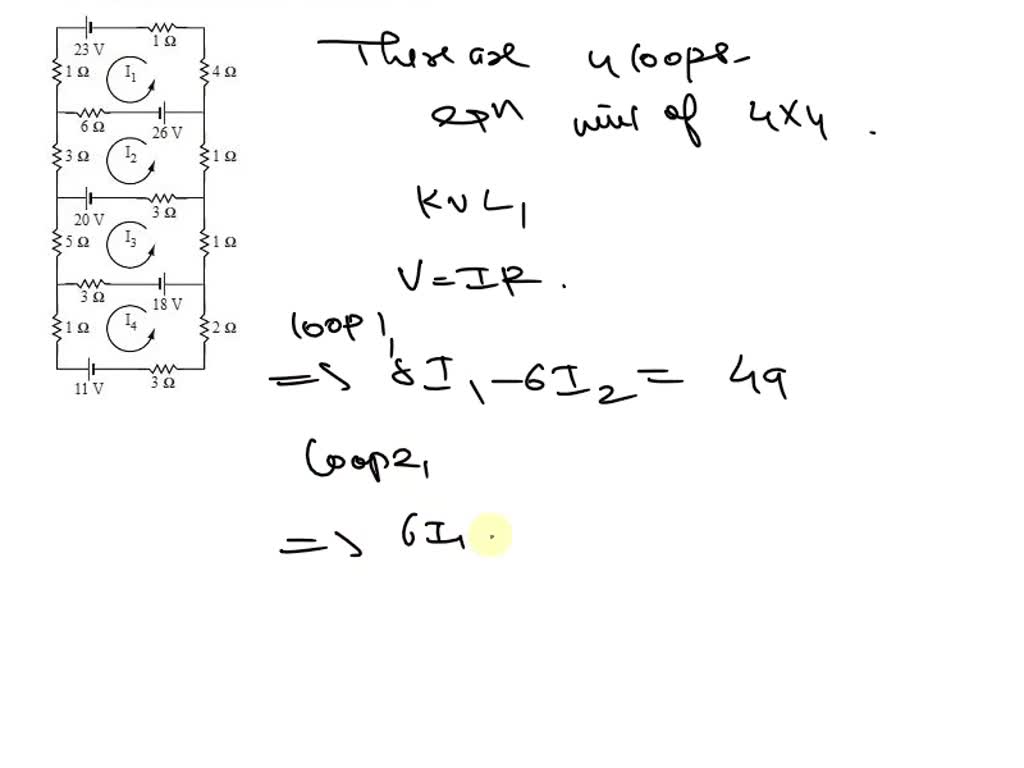 23 V
1 Ω
1 Ω
I1
4 Ω
6 Ω
26 V
3 Ω
I2
1 Ω
20 V
3 Ω
5 Ω
I3
1 Ω
3 Ω
18 V
1 Ω
I4
2 Ω
11 V
3 Ω
There are 4 loops-
eqn will of 4x4 .
KVL,
V=IR .
loop 1,
=> 8I1 - 6I2 = 49
Loop 2,
=> 6I1 .